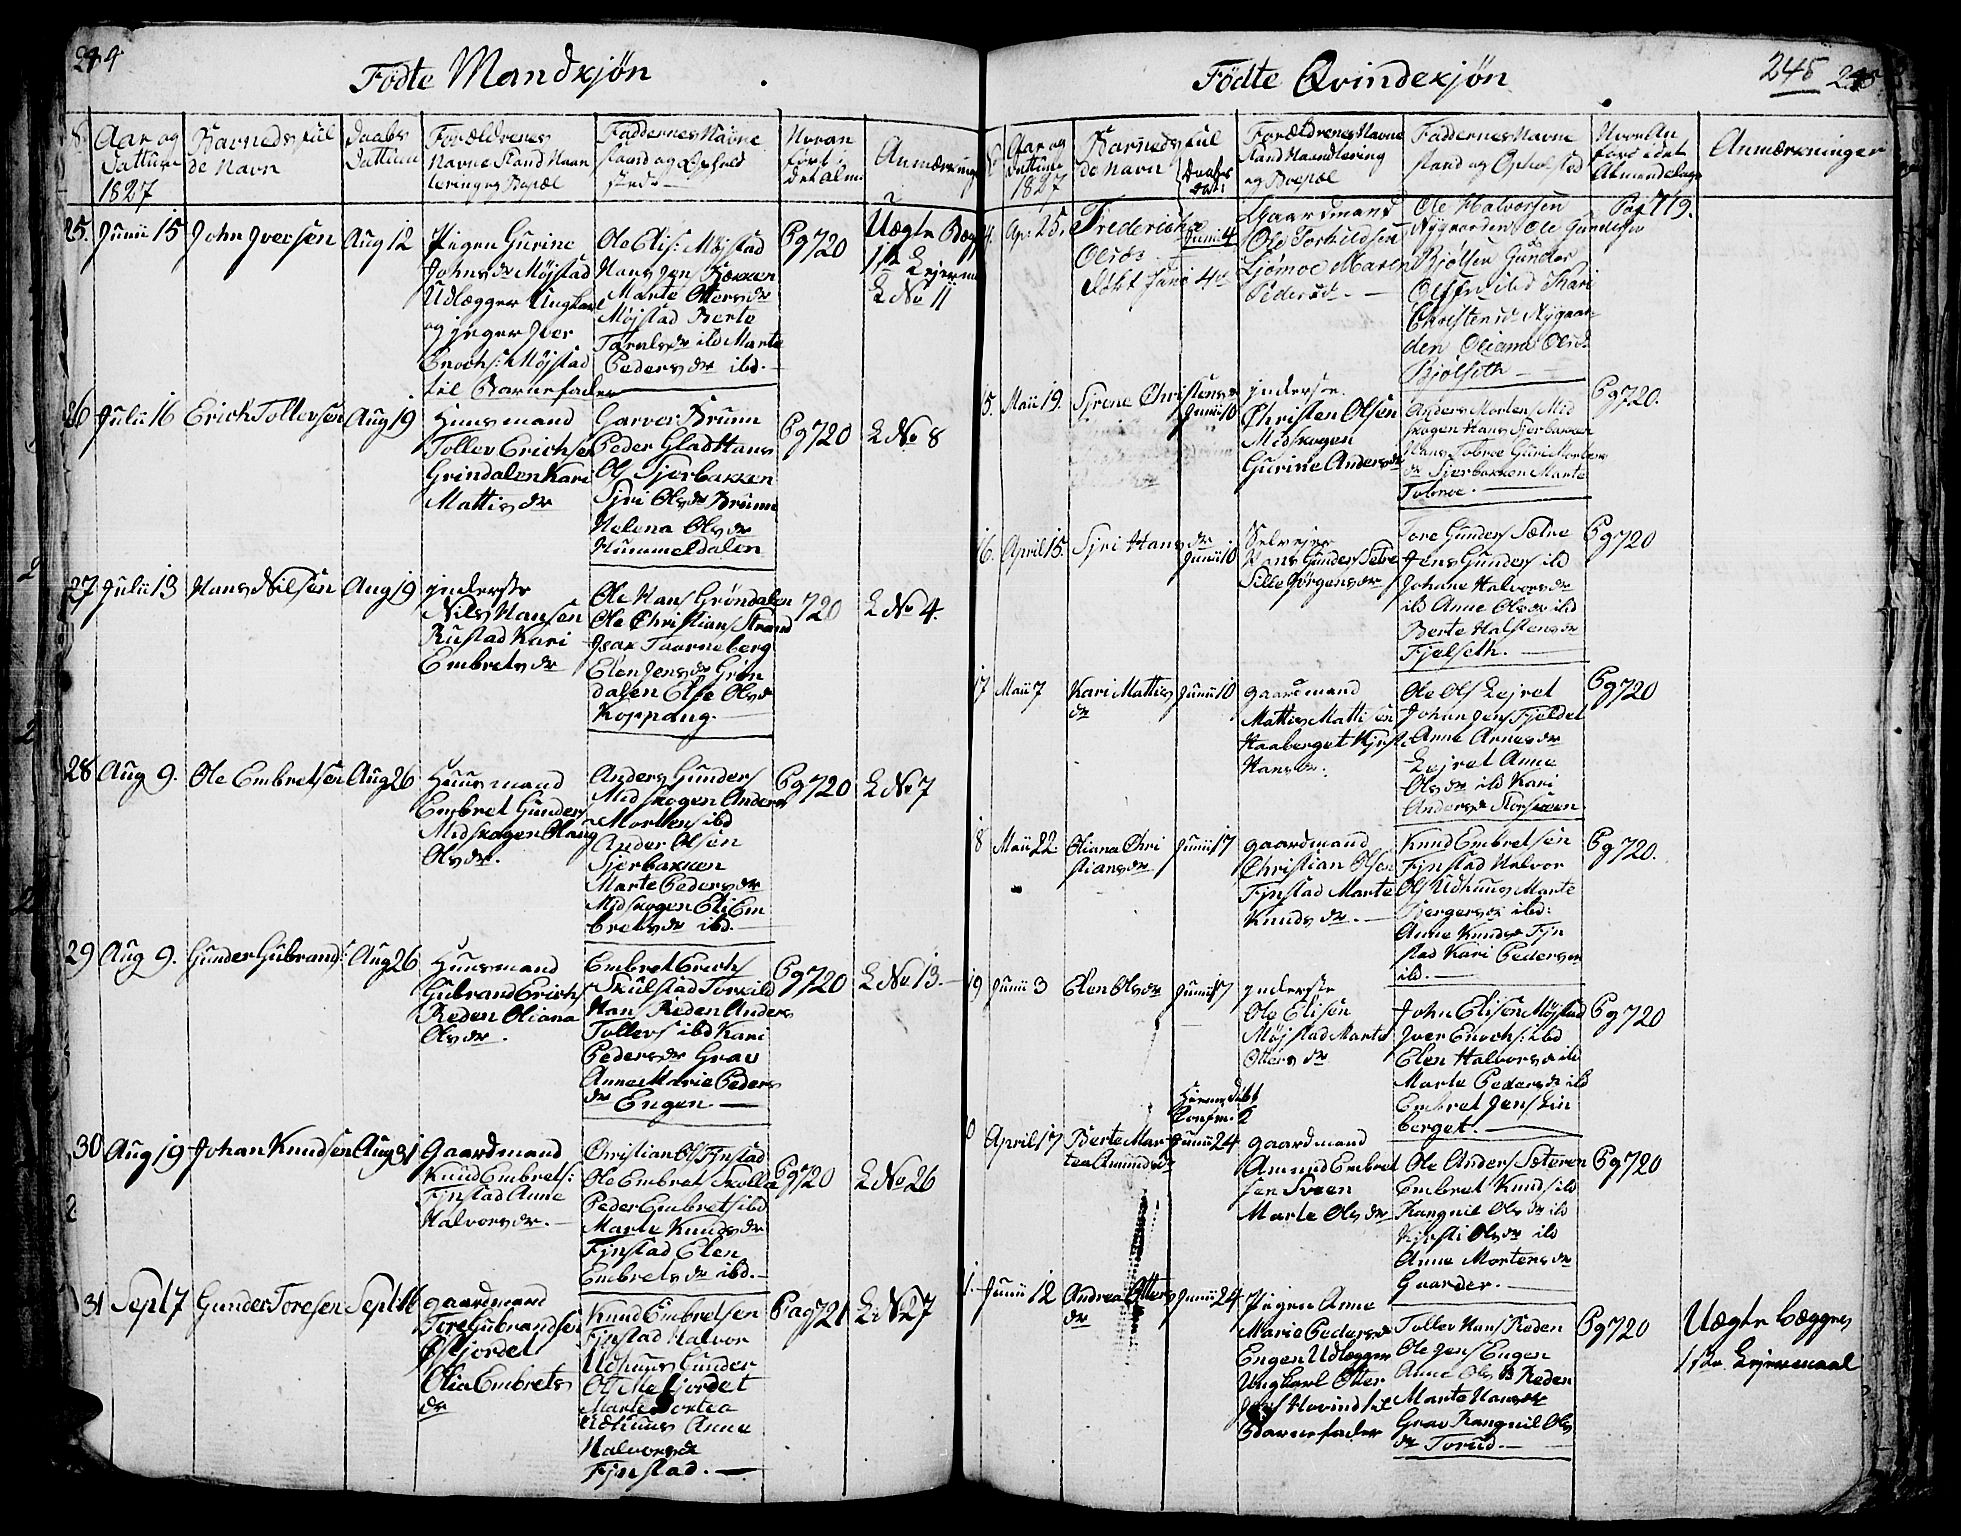 244
Fødte Mandkjøn
Aar og Dattum 1827
Barneds ful
de Navn
Daabs
Dattum
Forældrenes
Navne Stand Haan
tering og Bopæl
Faddernes Navne
stand og Opholds
sted
Hvoran
ført i
det alm:
Anmærkning
25. Junii 15
John Iversen
Aug 12
Pigen Gurine
Johnsdr Møjstad
Udlægger Ungkarl
og jæger Iver
Enochs: Møjstad
til Barnefader
Ole Elis: Møjstad
Hans Jen Bækken
Marte Ottersdr
Møjstad Berte
Pedersdr ibd.
Pg 720
Uægte
L No 11
26 Julii 16
Erich Tollevsen
Aug 19
Huusmand
Tollev Erichsen
Grindalen Kari
Mattisdr
Garver Brunn
Peder Glad Hans
Ols Sjerbakken
Sjri Olsdr Brunn
Helena Olsdr
Hummeldalen
Pg 720
L No 8
27 Julii 13
Hans Nilsen
Aug 19
jnderste
Nils Hansen
Rustad Kari
Embretsdr
Ole Hans Grøndalen
Ole Christians Strand
Isak Taarneberg
Elen Jensdr Grøn
dalen Else Olsdr
Koppang.
720
L No 4.
28 Aug 9.
Ole Embretsen
Aug 26
Huusmand
Embret Gunders
Midskogen Olaug
Olsdr.
Anders Gunders
Midskogen Anders
Mortens ibd
Ander Olsen
Sjerbakken
Marte Pedersdr
Midskogen Eli Em
bretsdr ibd.
Pg 720
L No 7
29 Aug 9.
Gunder Gubrands:
Aug 26
Huusmand
Gubrand Erichs
Reden Oliana
Olsdr.
Embret Erichs
Skulstad Torkild
Hans Reden Anders
Tollevs ibd Kari
Pedersdr Grav
Anne Marie Peders
dr Engen
Pg 720
L No 13.
30 Aug 19
Johan Knudsen
Aug 31
Gaardmand
Knud Embrets:
Fjnstad Anne
Halvorsdr.
Christian Ols Fjnstad
Ole Embret Skolla
Peder Embrets ibd
Marte Knudsdr
Fjnstad Elen
Embretsdr ibd.
Pg 720
L No 26
31 Sept 7
Gunder Toresen
Sept 16
gaardmand
Tore Gubrandsen
Olia Embrets
dr
Knud Embretsen
Fjnstad Halvor
Udhuus Gunder
Marte Dortea
Udhuus Anne
Halvorsdr
Fjnstad.
Pag 721
L No 27
Fødte Qvindekjøn
245 245
Aar og
Dattum
1827
Barneds ful
de Navn
Daabs
Dat:
Forældrenes Navne
Stand Haandtering
og Bopæl
Faddernes Navne
stand og Opholsted
Hvor An
ført i det
Almindelige
Anmærkninger
4. Apr: 25.
Frederikke
Olsdr
døbt Juni 4de
Junii 4
Gaardmand
Ole Torkildsen
Ljømoe Maren
Pedersdr.
Ole Halvorsen
Nygaarden Ole Gundersen
Bjølsen Gunder
Olsen ibd Kari
Christensdr Nygaar
den Oliana Olsdr
Bjølseth
Pag 719.
5. Maii 19.
Sjrene Christensdr
Junii 10
jnderste
Christen Olsen
Midskogen
Gurine Andersdr
Anders Mortens Mid
skogen Hans Sjerbakken
Hans Tobroe Guri Mortens
dr Sjerbakken Marte
Tobroe.
Pg 720.
16. April 15.
Sjri Hansdr
Junii 10
Selvejer
Hans Gunders Sætre
Sille Jørgensdr
Tore Gunders Sætre
Jens Gunders ibd
Johane Halvorsdr
ibd Anne Olsdr ibd
Berte Halstensdr
Fjelseth.
Pg 720
17 Maii 7
Kari Mattis
dr
Junii 10
gaardmand
Mattis Mattisen
Haaberget Kjrst:
Hansdr.
Ole Ols Lejret
Johan Jens Fjeldet
Anne Arnesdr
Lejret Anne
Olsdr ibd Kari
Andersdr Storsveen
Pg 720
8 Maii 22.
Oliana Chri
stiansdr
Junii 17
gaardmand
Christian Olsen
Fjnstad Marte
Knudsdr.
Knud Embretsen
Fjnstad Halvor
Ols Udhuus Marte
Bergersdr ibd:
Anne Knudsdr Fjn
stad Kari Pedersdr
ibd.
Pg 720.
19 Junii 3
Elen Olsdr
Junii 17
jnderste
Ole Elisen
Møjstad Marte
Ottersdr
John Elisen Møjstad
Iver Enochs: ibd
Elen Halvorsdr ibd
Marte Pedersdr ibd
Embret Jens Lin
berget.
Pg 720
0 April 17
Berte Mar
tea Amundsdr
Hjemedøbt
Confirm:
Junii 24
gaardmand
Amund Embret
sen Sveen
Marte Olsdr
Ole Anders Sæteren
Embret Knuds ibd
Rangnil Olsdr ibd
Kjrsti Olsdr ibd
Anne Mortensdr
Gaarder.
Pg 720
1. Junii 12
Andrea Otters
dr
Junii 24
Pigen Anne
Marie Pedersdr
Engen Udlægger
Ungkarl Otter
Hovind til
Barnefader
Tollev Hans Reden
Ole Jens Engen
Anne Olsdr Reden
Marte Hansdr
Grav Rangnil Ols
dr Torud.
Pg 720
Uægte Begges
1ste Lejermaal